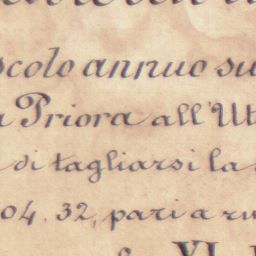 scolo annuo su
Priora all' Ut
di tagliarsi la
04. 32, pari a ru
XI.